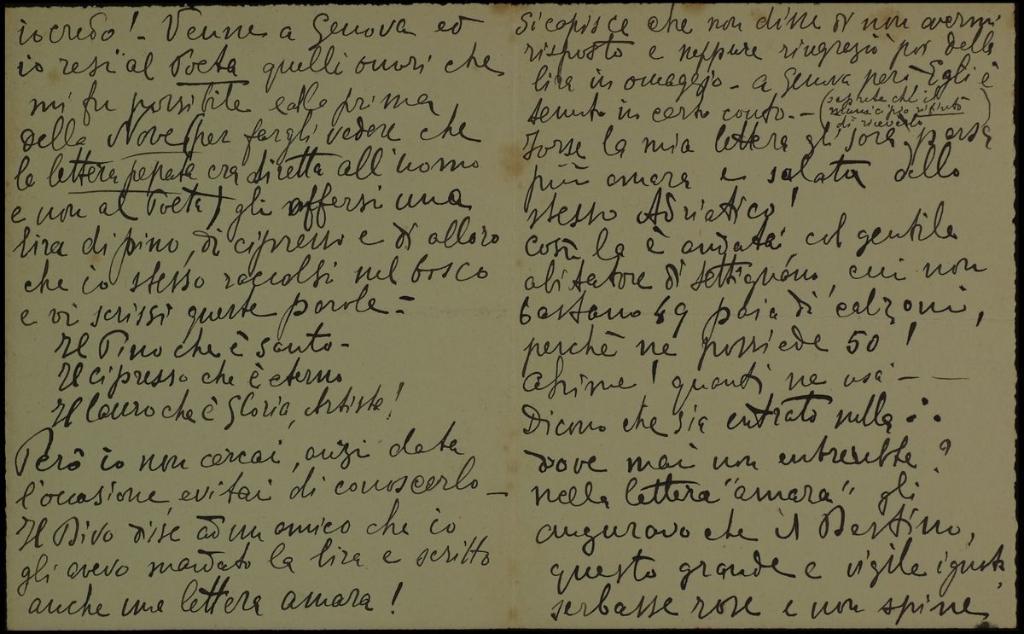 io credo! - Venne a Genova ed
io resi al Poeta quelli onori che
mi fu possibile e alla prima
della Nave (per fargli vedere che
la lettera pepata era diretta all'uomo
e non al Poeta) gli offersi una
lira di pino, di cipresso e di alloro
che io stesso raccolsi nel bosco
e vi scrissi queste parole -
Il Pino che è santo -
Il cipresso che è eterno
Il lauro che è Gloria, Artista!
Però io non cercai, anzi data
l'occasione, evitai di conoscerlo -
Il Divo disse ad un amico che io
gli avevo mandato la lira e scritto
anche una lettera amara!
Si capisce che non disse di non avermi
risposto e neppure ringraziò poi della
lira in omaggio - a Genova però Egli è
tenuto in certo conto. - (saprete che il
municipio rifiutò
di riceverlo)
Forse la mia lettera gli sarà parsa
più amara e salata dello
stesso Adriatico!
Così la è andata col gentile
abitatore di Settignano, cui non
bastano 49 paia di calzoni,
perchè ne possiede 50!
Afrime! quanti ne usa - -
Dicono che sia entrato nella ∴
dove mai non entrerebbe?
nella lettera "amara" gli
auguravo che il Destino,
questo grande e vigile
serbasse rose e non spine